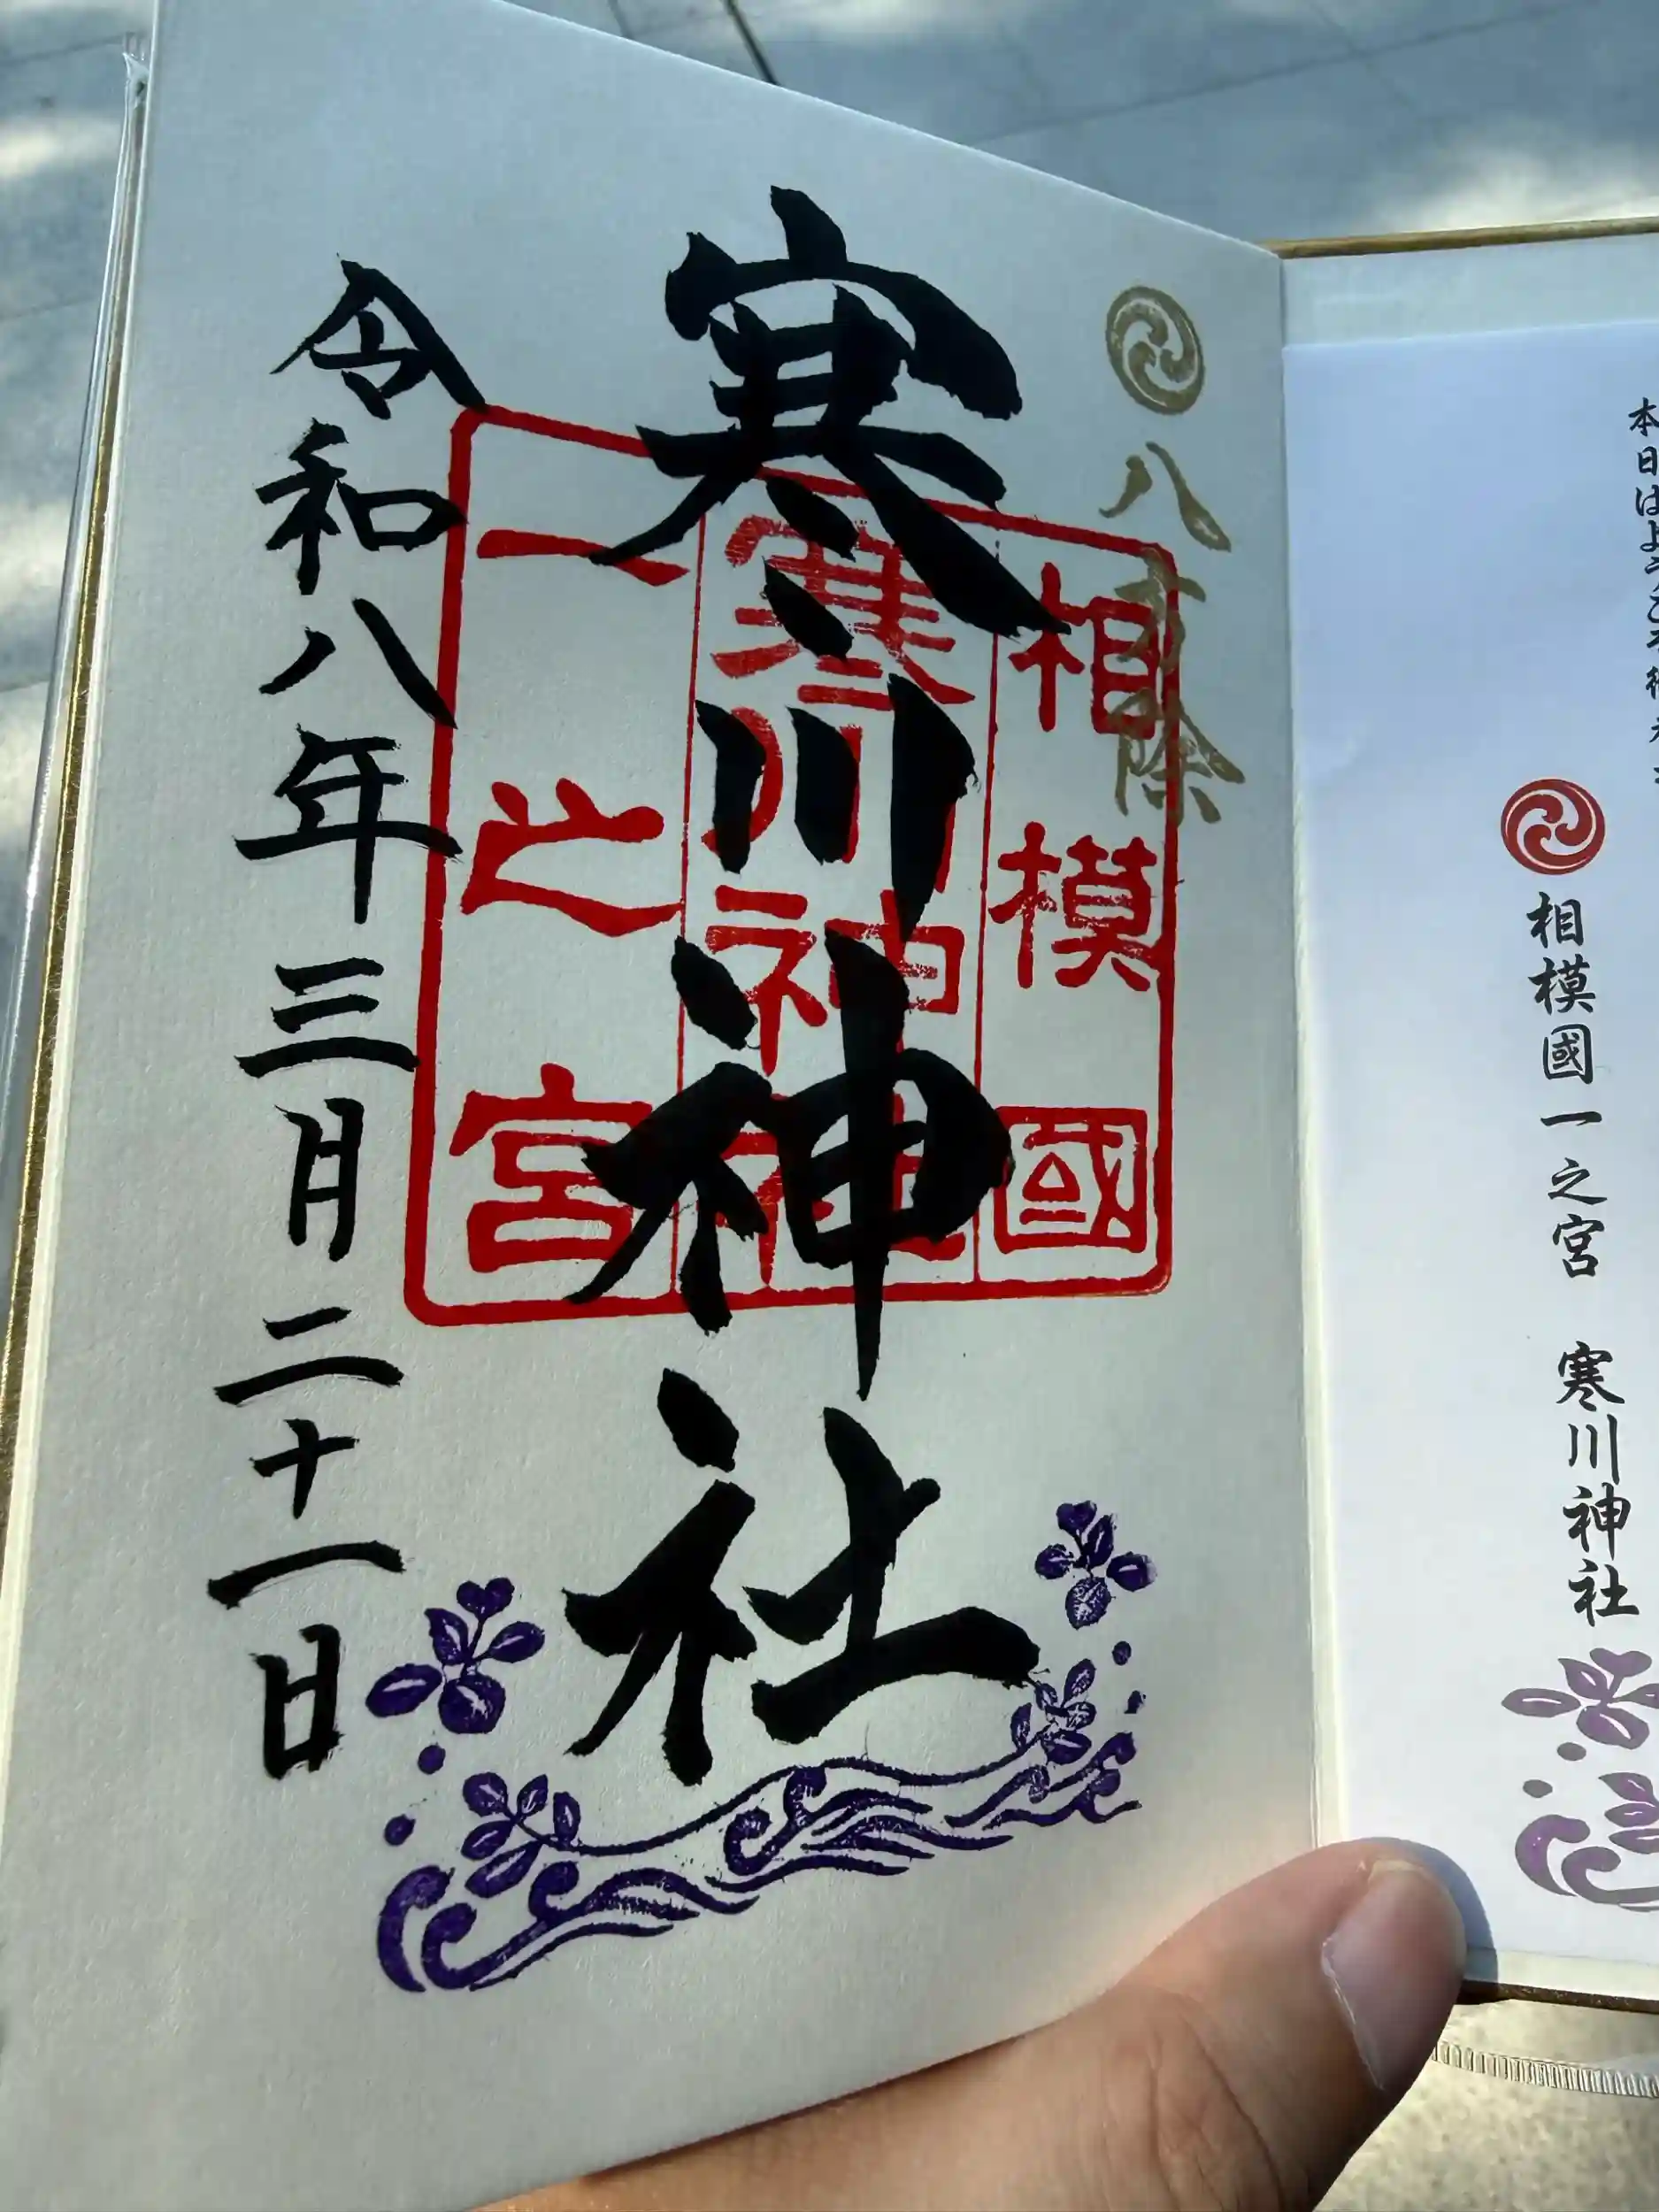 八方除
寒川神社
相模國
寒川神社
一之宮
令和八年三月二十一日
本日はようこそ
相模國一之宮 寒川神社